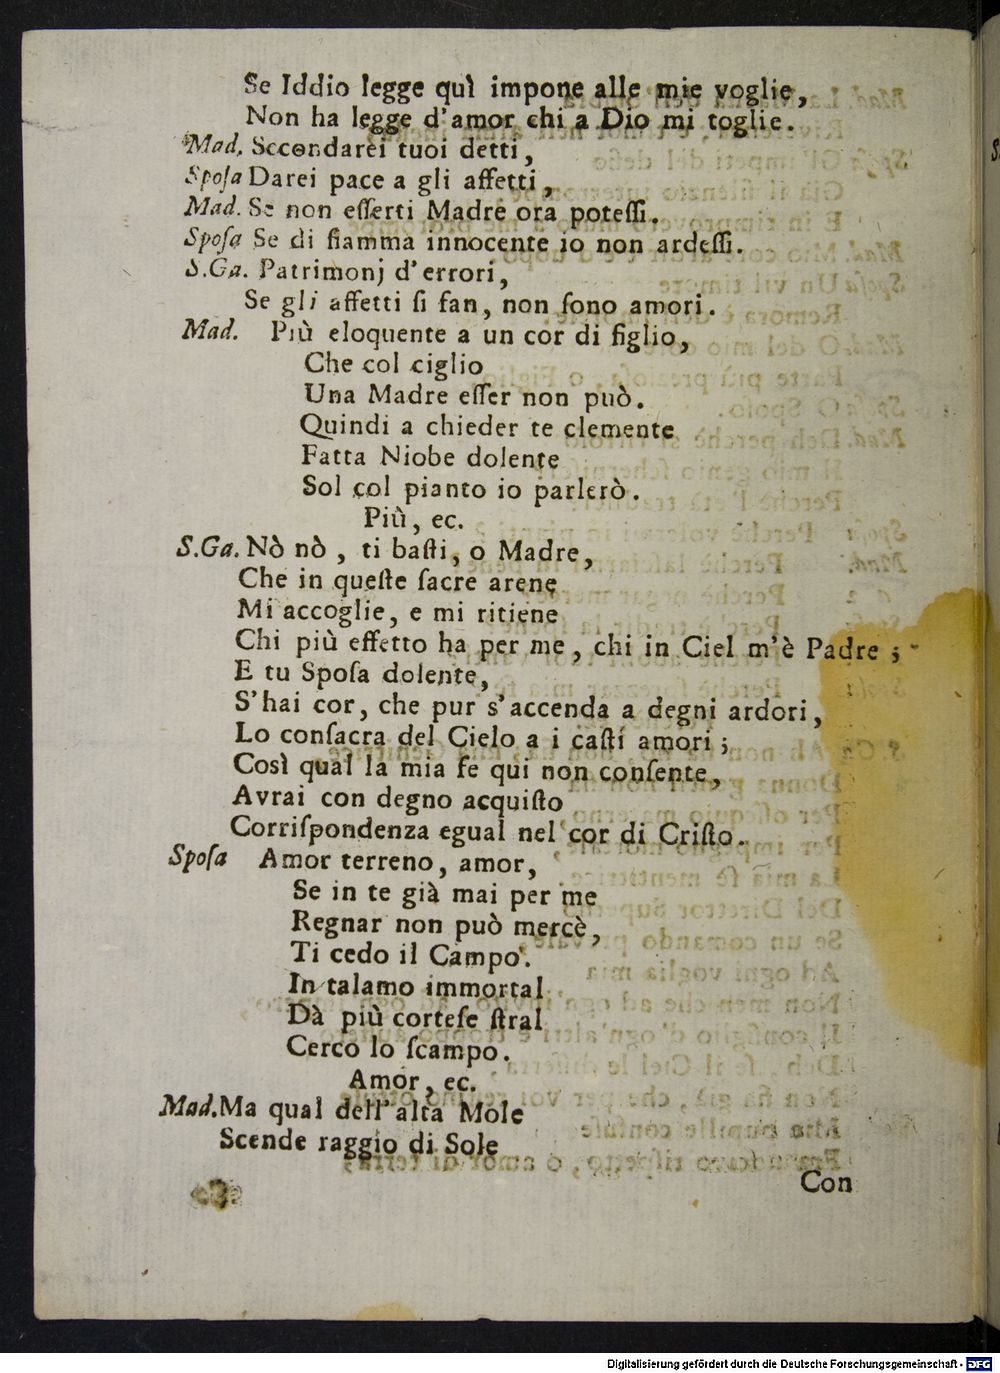 Se Iddio legge quì impone alle mie voglie,
Non ha legge d'amor chi a Dio mi toglie.
Mad. Secondarei tuoi detti,
Spoſa Darei pace a gli affetti,
Mad. Se non eſſerti Madre ora poteſſi.
Spoſa Se di fiamma innocente io non ardeſſi.
S.Ga. Patrimonj d'errori,
Se gli affetti ſi fan, non ſono amori.
Mad. Più eloquente a un cor di figlio,
Che col ciglio
Una Madre eſſer non può.
Quindi a chieder te clemente
Fatta Niobe dolente
Sol col pianto io parlerò.
Più, ec.
S.Ga. Nò nò, ti baſti, o Madre,
Che in queſte ſacre arene
Mi accoglie, e mi ritiene
Chi più effetto ha per me, chi in Ciel m'è Padre;
E tu Spoſa dolente,
S'hai cor, che pur s'accenda a degni ardori,
Lo conſacra del Cielo a i caſti amori;
Così qual la mia fe qui non conſente,
Avrai con degno acquiſto
Corriſpondenza egual nel cor di Criſto.
Spoſa Amor terreno, amor,
Se in te già mai per me
Regnar non può mercè,
Ti cedo il Campo.
In talamo immortal
Dà più corteſe ſtral
Cerco lo ſcampo.
Amor, ec.
Mad. Ma qual dell'alta Mole
Scende raggio di Sole
Con
Digitalisierung gefördert durch die Deutsche Forschungsgemeinschaft - DFG